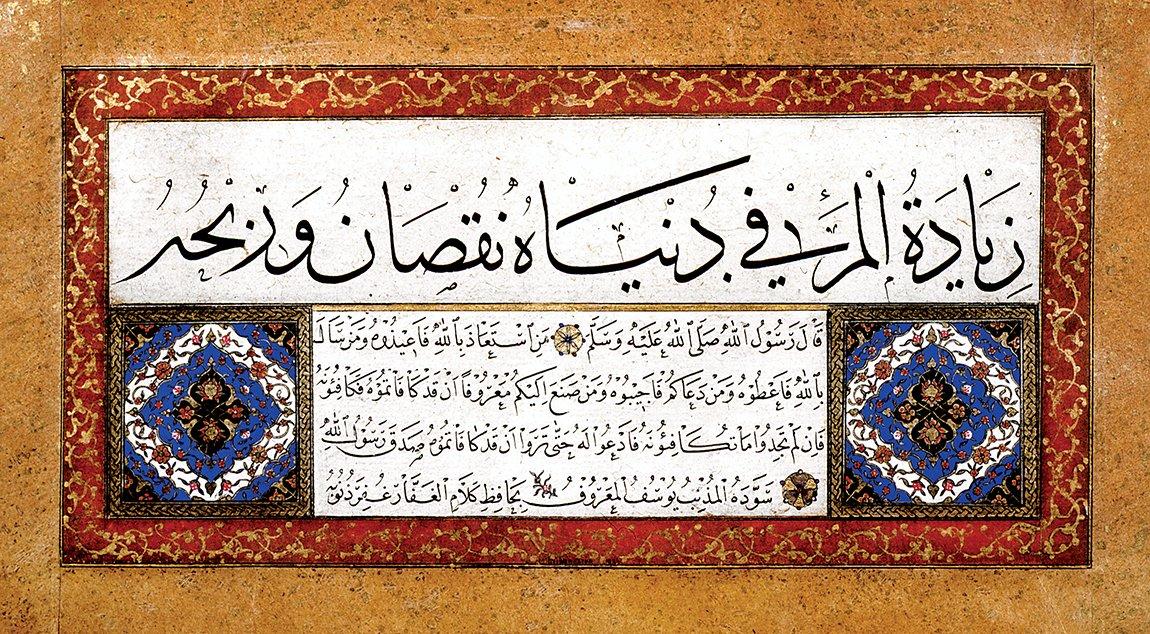 زِيَادَةُ الْمَرْءِ فِي دُنْيَاهُ نُقْصَانٌ وَرِبْحُهُ
قَالَ رَسُولُ اللهِ صَلَّى اللهُ عَلَيْهِ وَسَلَّمَ مَنِ اسْتَعَاذَ بِاللهِ فَاَعِيذُوهُ وَمَنْ سَاَلَ
بِاللهِ فَاَعْطُوْهُ وَمَنْ دَعَاكُمْ فَاَجِيْبُوْهُ وَمَنْ صَنَعَ اِلَيْكُمْ مَعْرُوفًا اَنْ قَدْ كَافَاتُمُوْهُ فَكَافِئُوْهُ
فَاِنْ لَمْ تَجِدُوا مَا تُكَافِئُونَهُ فَادْعُوا لَهُ حَتّٰى تَرَوْا اَنْ قَدْ كَافَاتُمُوهُ صَدَقَ رَسُولُ اللهِ
سَوَّدَهُ الْمُذْنِبُ يُوسُفُ الْمَعْرُوفُ بِحَافِظِ كَلَامِ الْغَفَّارِ غُفِرَ ذُنُوبُهُ